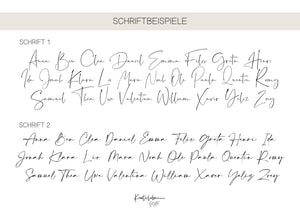 SCHRIFTBEISPIELE
SCHRIFT 1
Anna Ben Clea Daniel Emma Felix Greta Henri
Ida Jonah Klara Liv Mara Noah Ole Paula Quentin Romy
Samuel Thea Uwe Valentina William Xaver Yeliz Zoey
SCHRIFT 2
Anna Ben Clea Daniel Emma Felix Greta Henri Ida
Jonah Klara Liv Mara Noah Ole Paula Quentin Romy
Samuel Thea Uwe Valentina William Xaver Yeliz Zoey